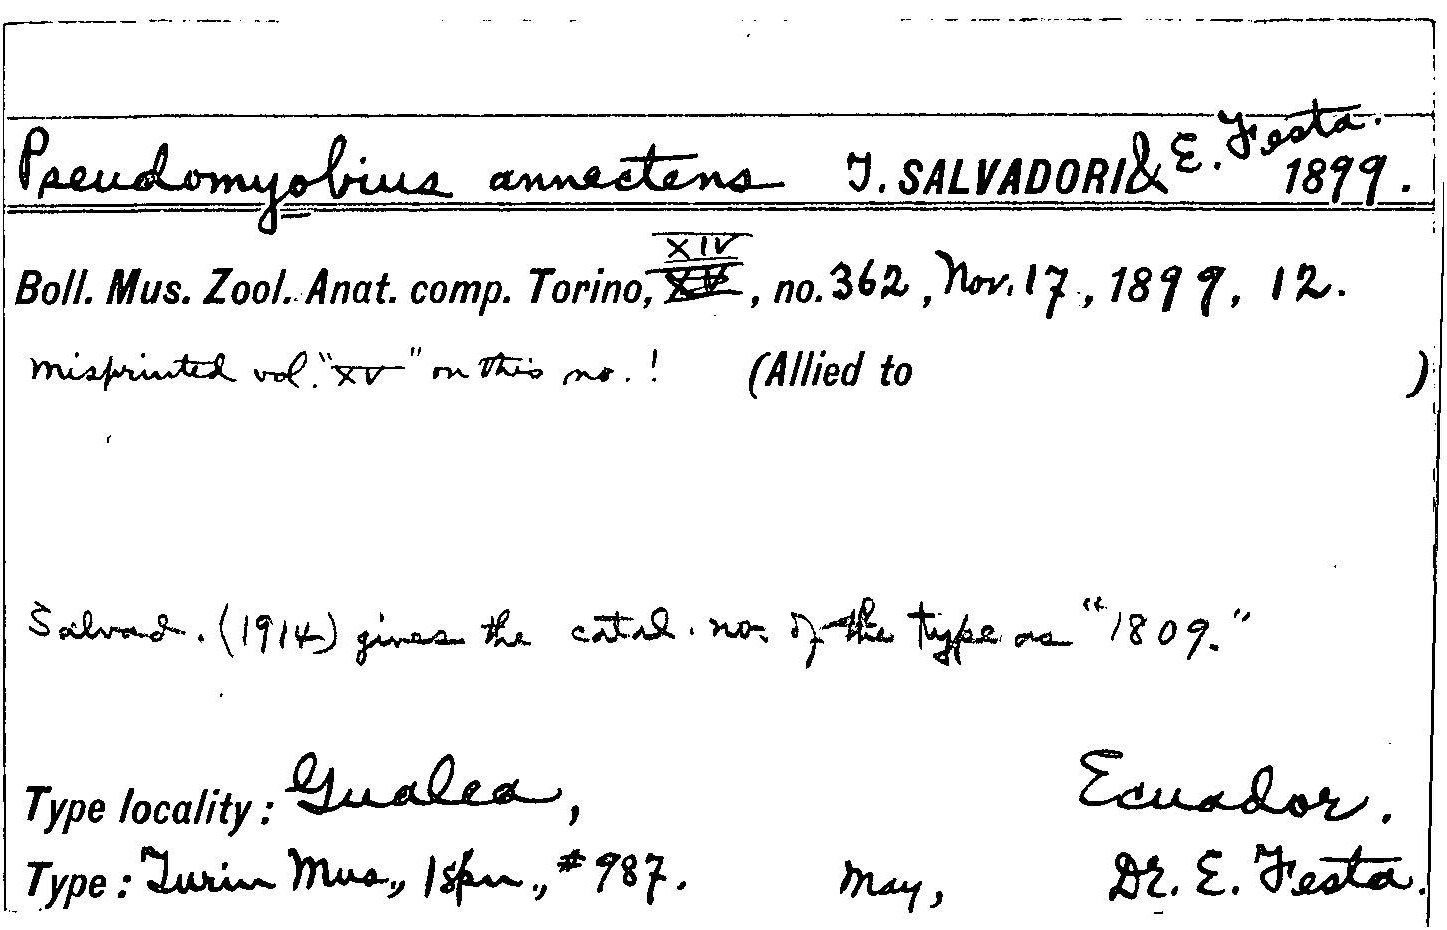 Pseudomyobius annectens T. SALVADORI & E. Festa. 1899.
Boll. Mus. Zool. Anat. comp. Torino, XV XIV, no. 362, Nov. 17, 1899, 12.
Misprinted vol. "XV" on this no.! (Allied to )
Salvad. (1914) gives the catal. no. of the type as "1809."
Type locality: Gualea, Ecuador.
Type: Turin Mus., 1 spn., #987. May, Dr. E. Festa.